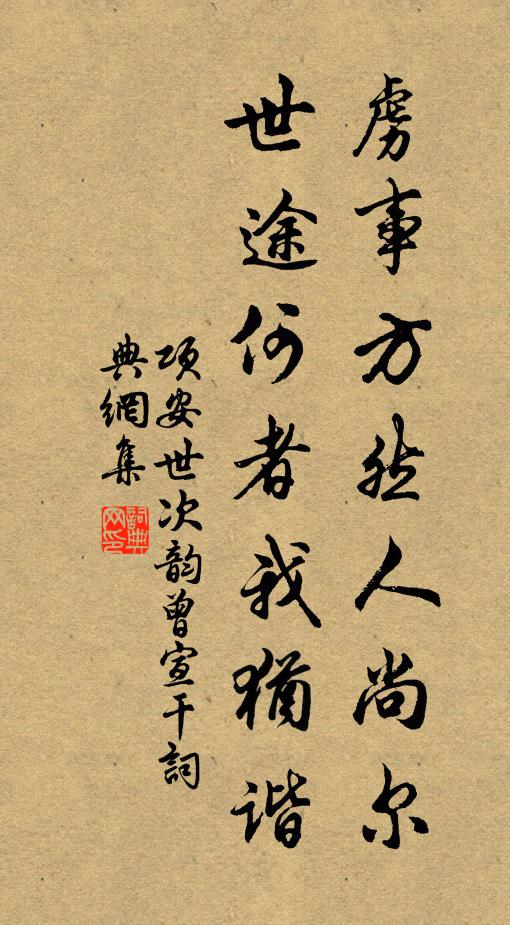 虏事方然人尚尔
世途何者我犹谐
项安世次韵曾宣干詞
典網集
詞典网印